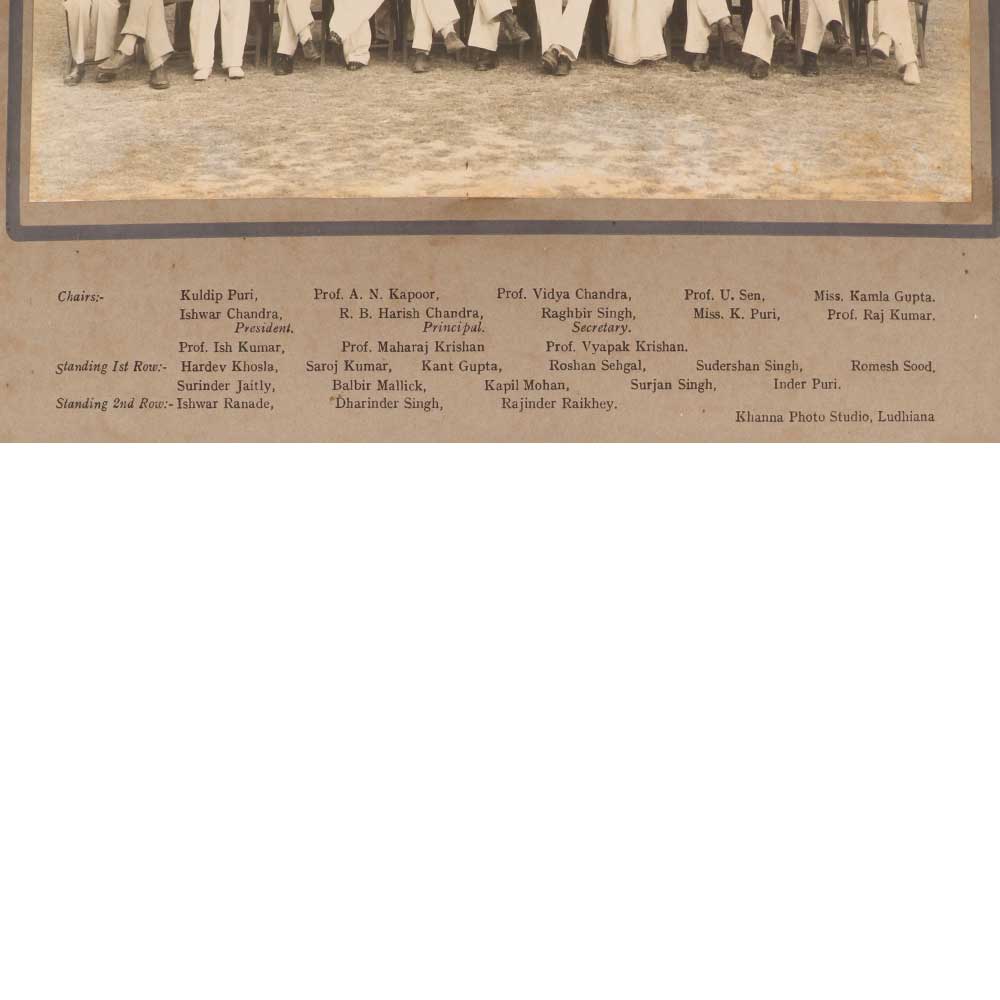 Chairs:- Kuldip Puri, Prof. A. N. Kapoor, Prof. Vidya Chandra, Prof. U. Sen, Miss. Kamla Gupta.
Ishwar Chandra, R. B. Harish Chandra, Raghbir Singh, Miss. K. Puri, Prof. Raj Kumar.
President. Principal. Secretary.
Prof. Ish Kumar, Prof. Maharaj Krishan Prof. Vyapak Krishan.
Standing 1st Row:- Hardev Khosla, Saroj Kumar, Kant Gupta, Roshan Sehgal, Sudershan Singh, Romesh Sood.
Surinder Jaitly, Balbir Mallick, Kapil Mohan, Surjan Singh, Inder Puri.
Standing 2nd Row:- Ishwar Ranade, Dharinder Singh, Rajinder Raikhey.
Khanna Photo Studio, Ludhiana